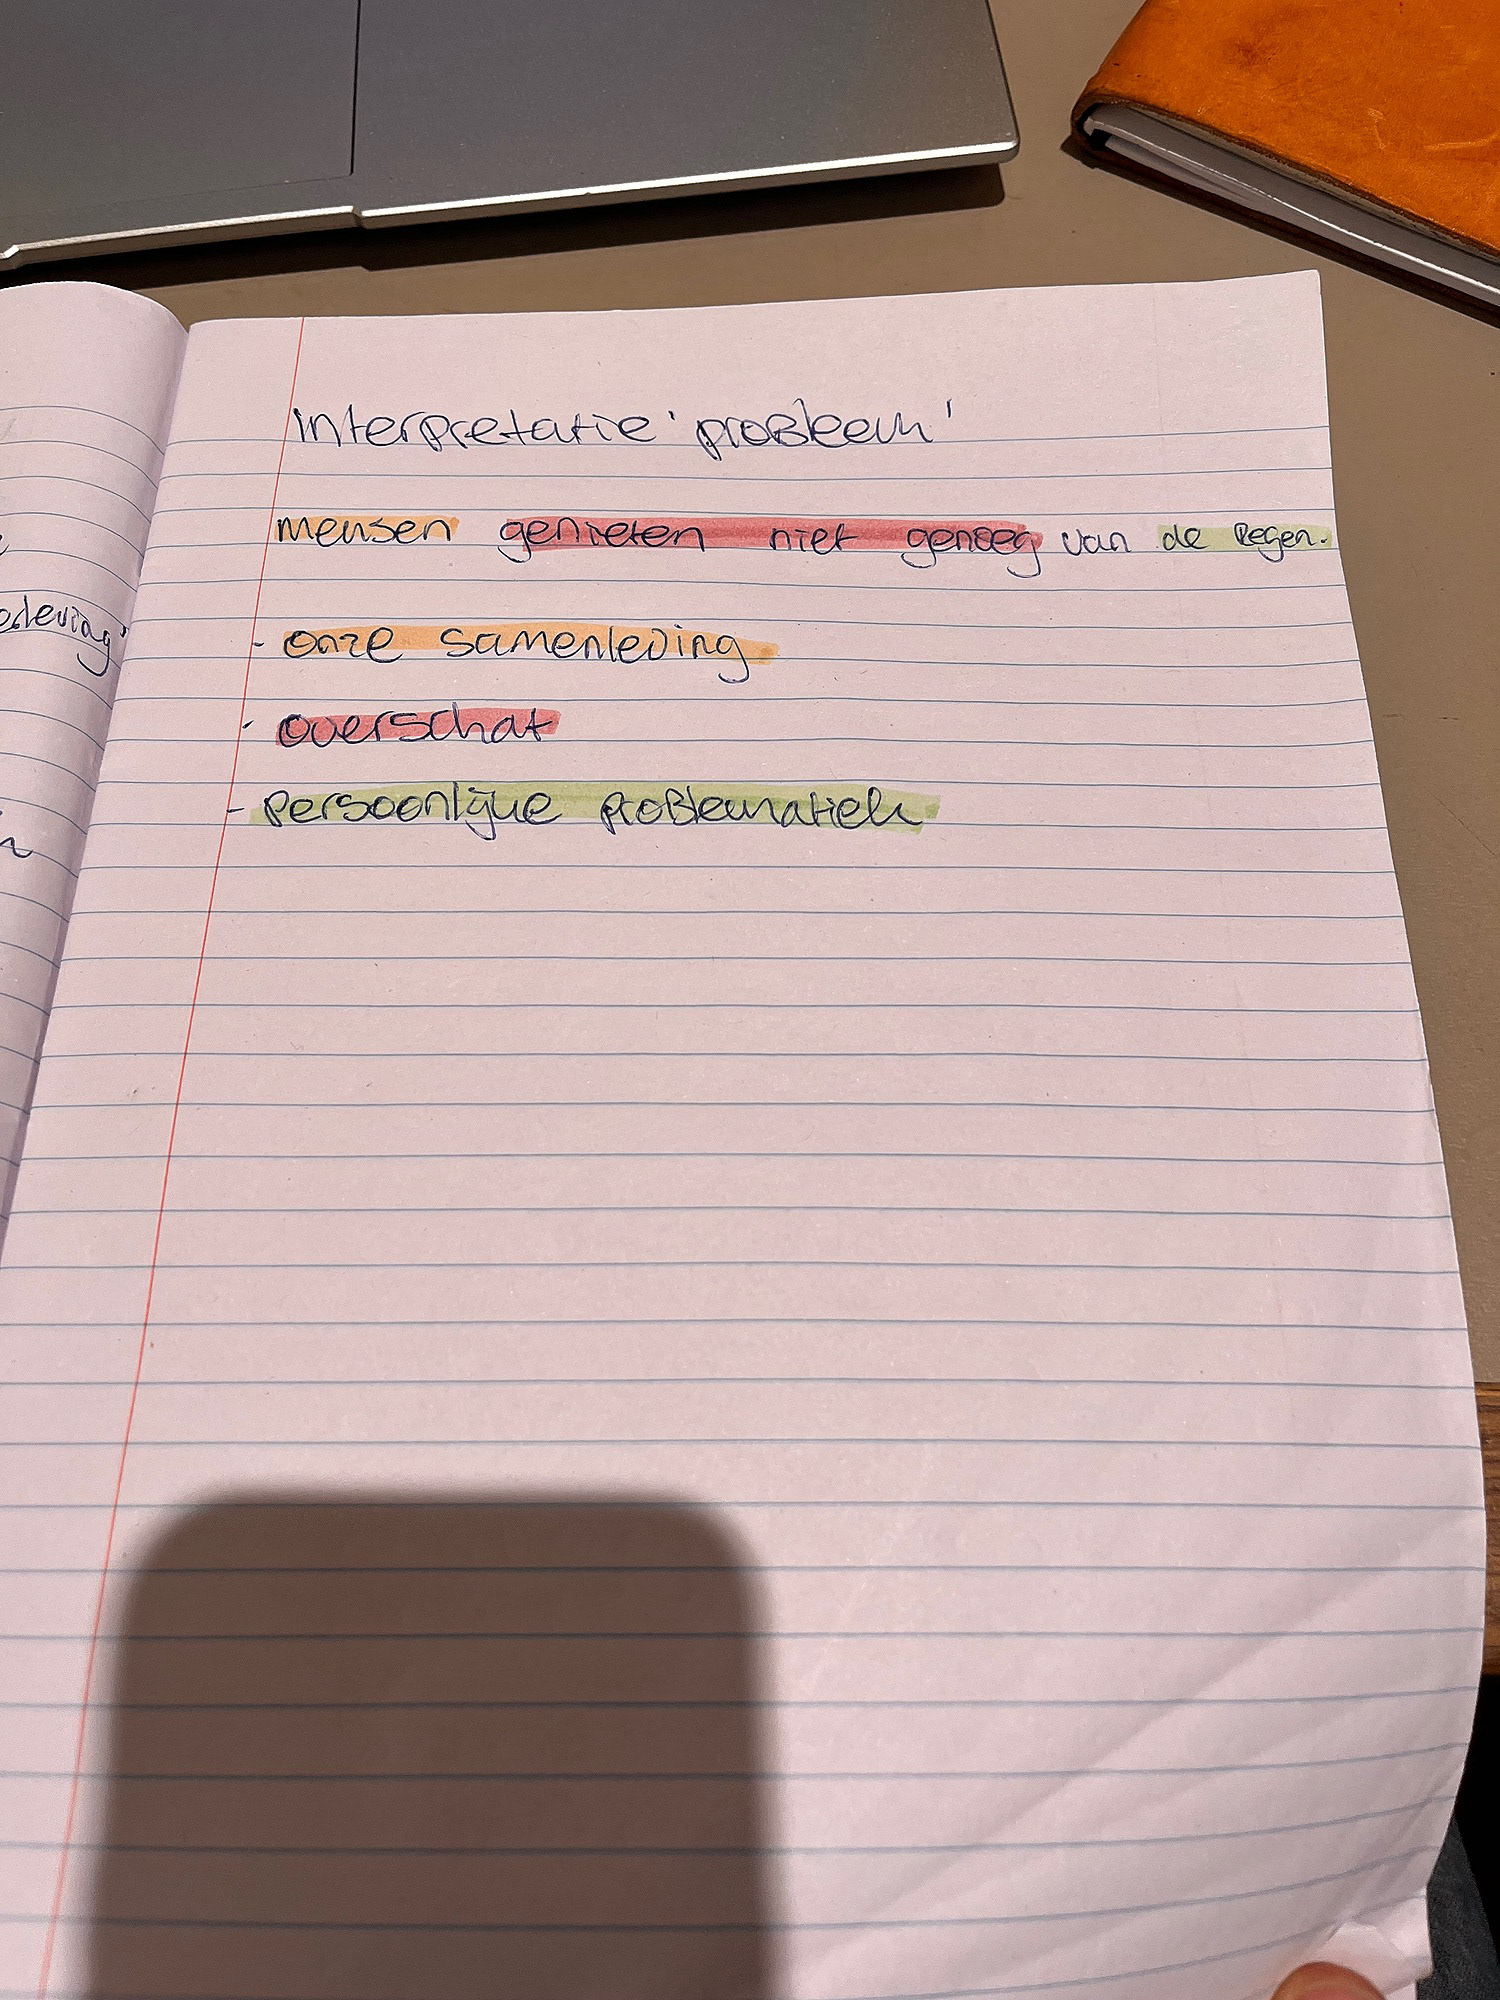 interpretatie 'probleem'
mensen genieten niet genoeg van de Regen.
- onze samenleving
- overschat
- persoonlijke problematiek